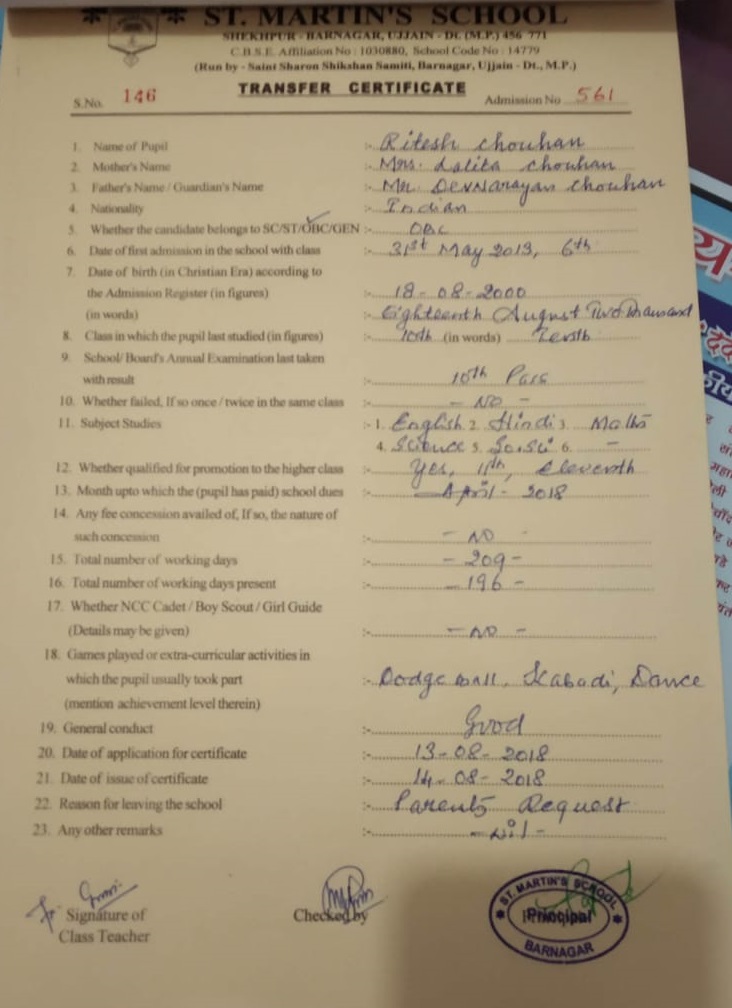 ST. MARTIN'S SCHOOL
SHEKHPUR - BARNAGAR, UJJAIN - Dt. (M.P.) 456 771
C.B.S.E. Affiliation No : 1030880, School Code No : 14779
(Run by - Saint Sharon Shikshan Samiti, Barnagar, Ujjain - Dt., M.P.)
TRANSFER CERTIFICATE
S.No. 146 Admission No 561
1. Name of Pupil :- Ritesh Chouhan
2. Mother's Name :- Mrs. Lalita Chouhan
3. Father's Name / Guardian's Name :- Mr. Devnarayan Chouhan
4. Nationality :- Indian
5. Whether the candidate belongs to SC/ST/OBC/GEN :- OBC
6. Date of first admission in the school with class :- 31st May 2013, 6th
7. Date of birth (in Christian Era) according to
the Admission Register (in figures) :- 18-08-2000
(in words) :- Eighteenth August Two Thousand
8. Class in which the pupil last studied (in figures) :- 10th (in words) Tenth
9. School/ Board's Annual Examination last taken
with result :- 10th Pass
10. Whether failed, If so once / twice in the same class :- - NO -
11. Subject Studies :- 1. English 2. Hindi 3. Maths
4. Science 5. So.Sci 6. -
12. Whether qualified for promotion to the higher class :- Yes, 11th, Eleventh
13. Month upto which the (pupil has paid) school dues :- - April - 2018
14. Any fee concession availed of, If so, the nature of
such concession :- - NO -
15. Total number of working days :- - 209 -
16. Total number of working days present :- - 196 -
17. Whether NCC Cadet / Boy Scout / Girl Guide
(Details may be given) :- - NO -
18. Games played or extra-curricular activities in
which the pupil usually took part :- Dodge ball, Kabadi, Dance
(mention achievement level therein)
19. General conduct :- Good
20. Date of application for certificate :- 13-08-2018
21. Date of issue of certificate :- 14-08-2018
22. Reason for leaving the school :- Parents Request
23. Any other remarks :- - Nil -
Signature of
Class Teacher
Checked by
ST. MARTIN'S SCHOOL
Principal
BARNAGAR